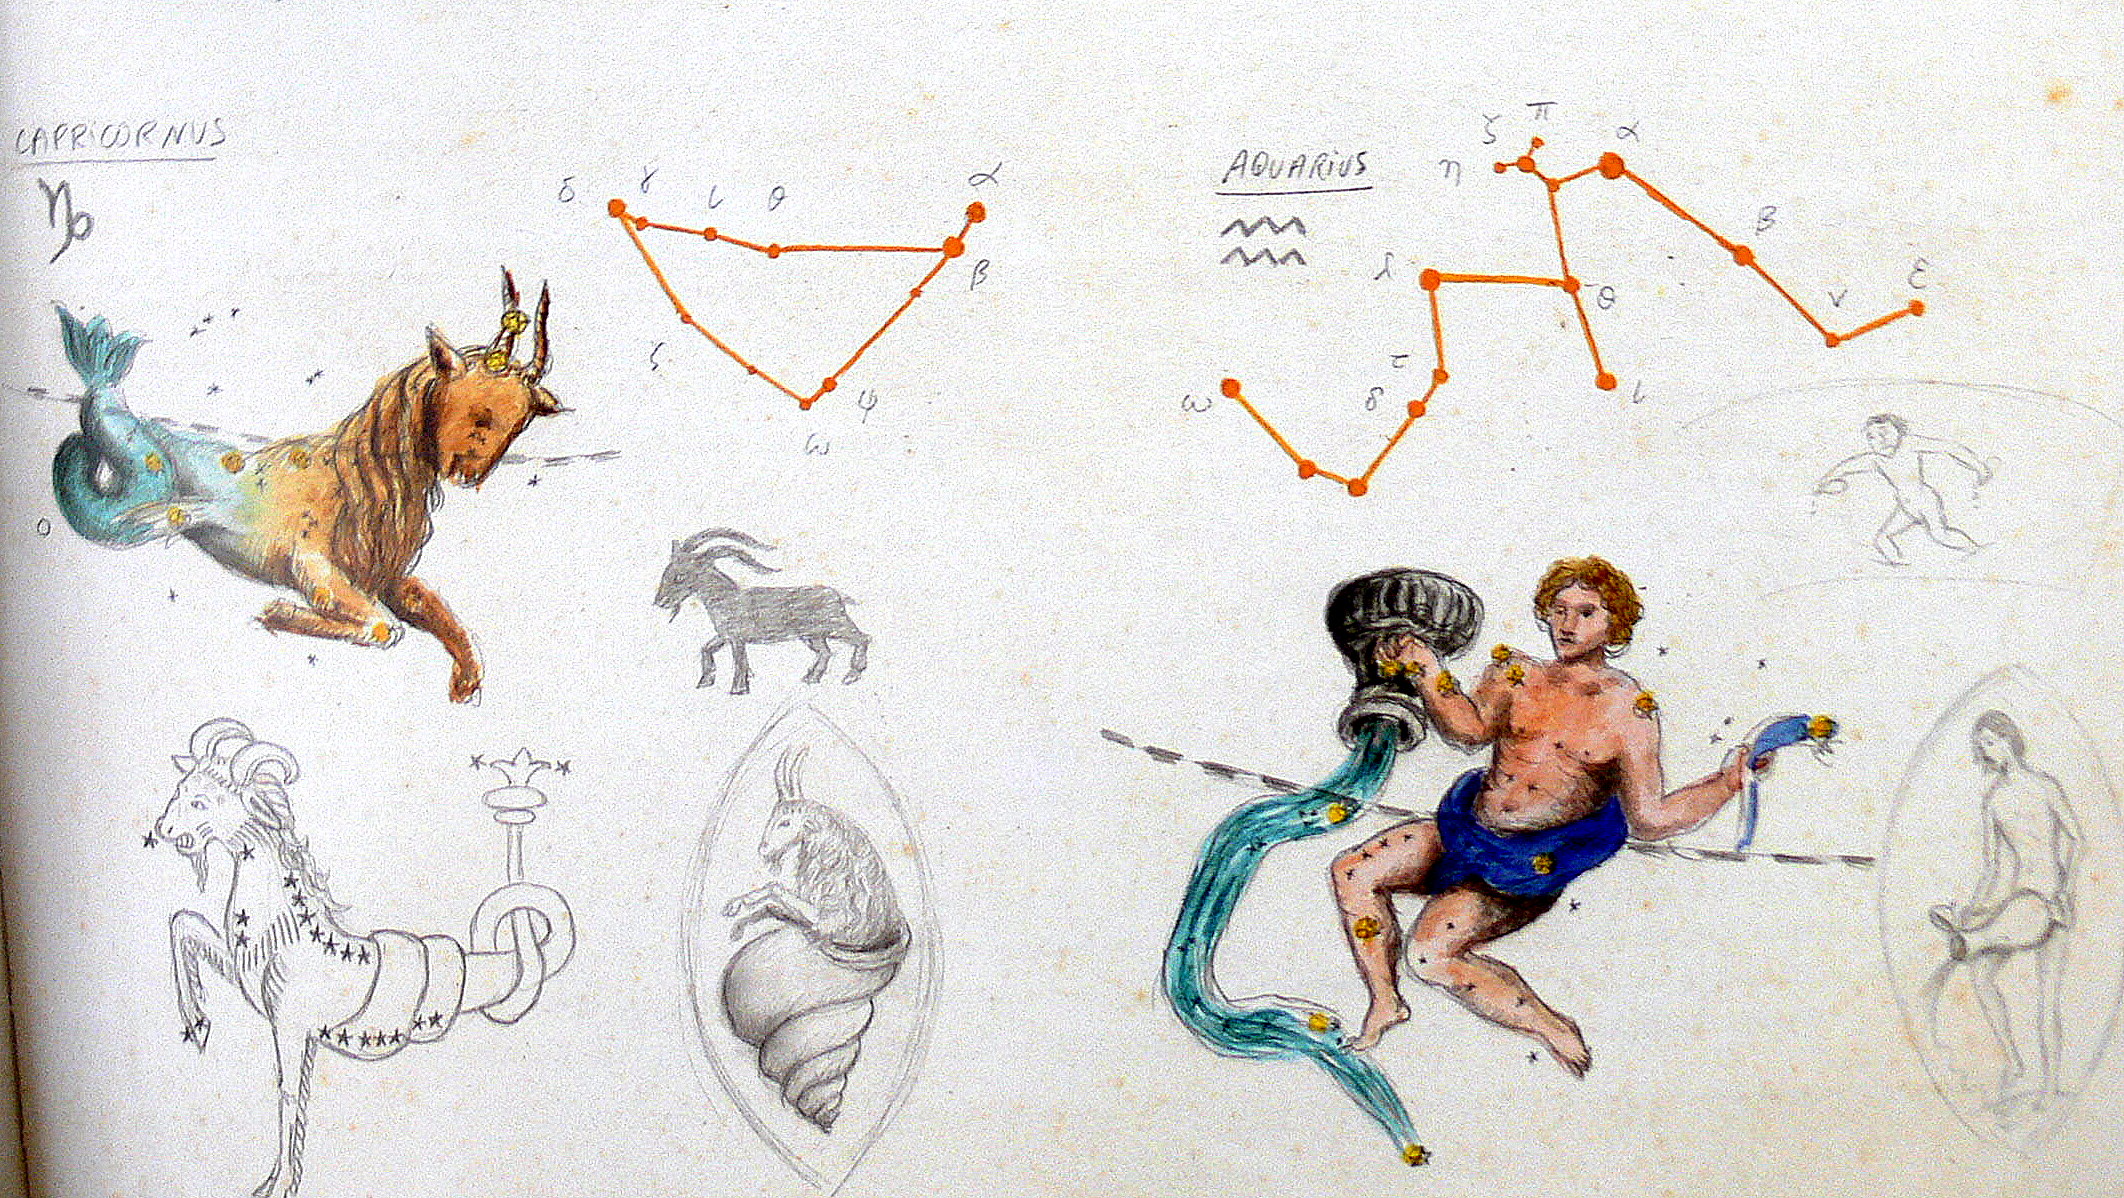 CAPRICORNUS
♑
δ γ ι θ α
β
ζ
ψ
ω
AQUARIUS
♒
π
ζ α
η
β
λ θ ν ε
τ
ω δ ι